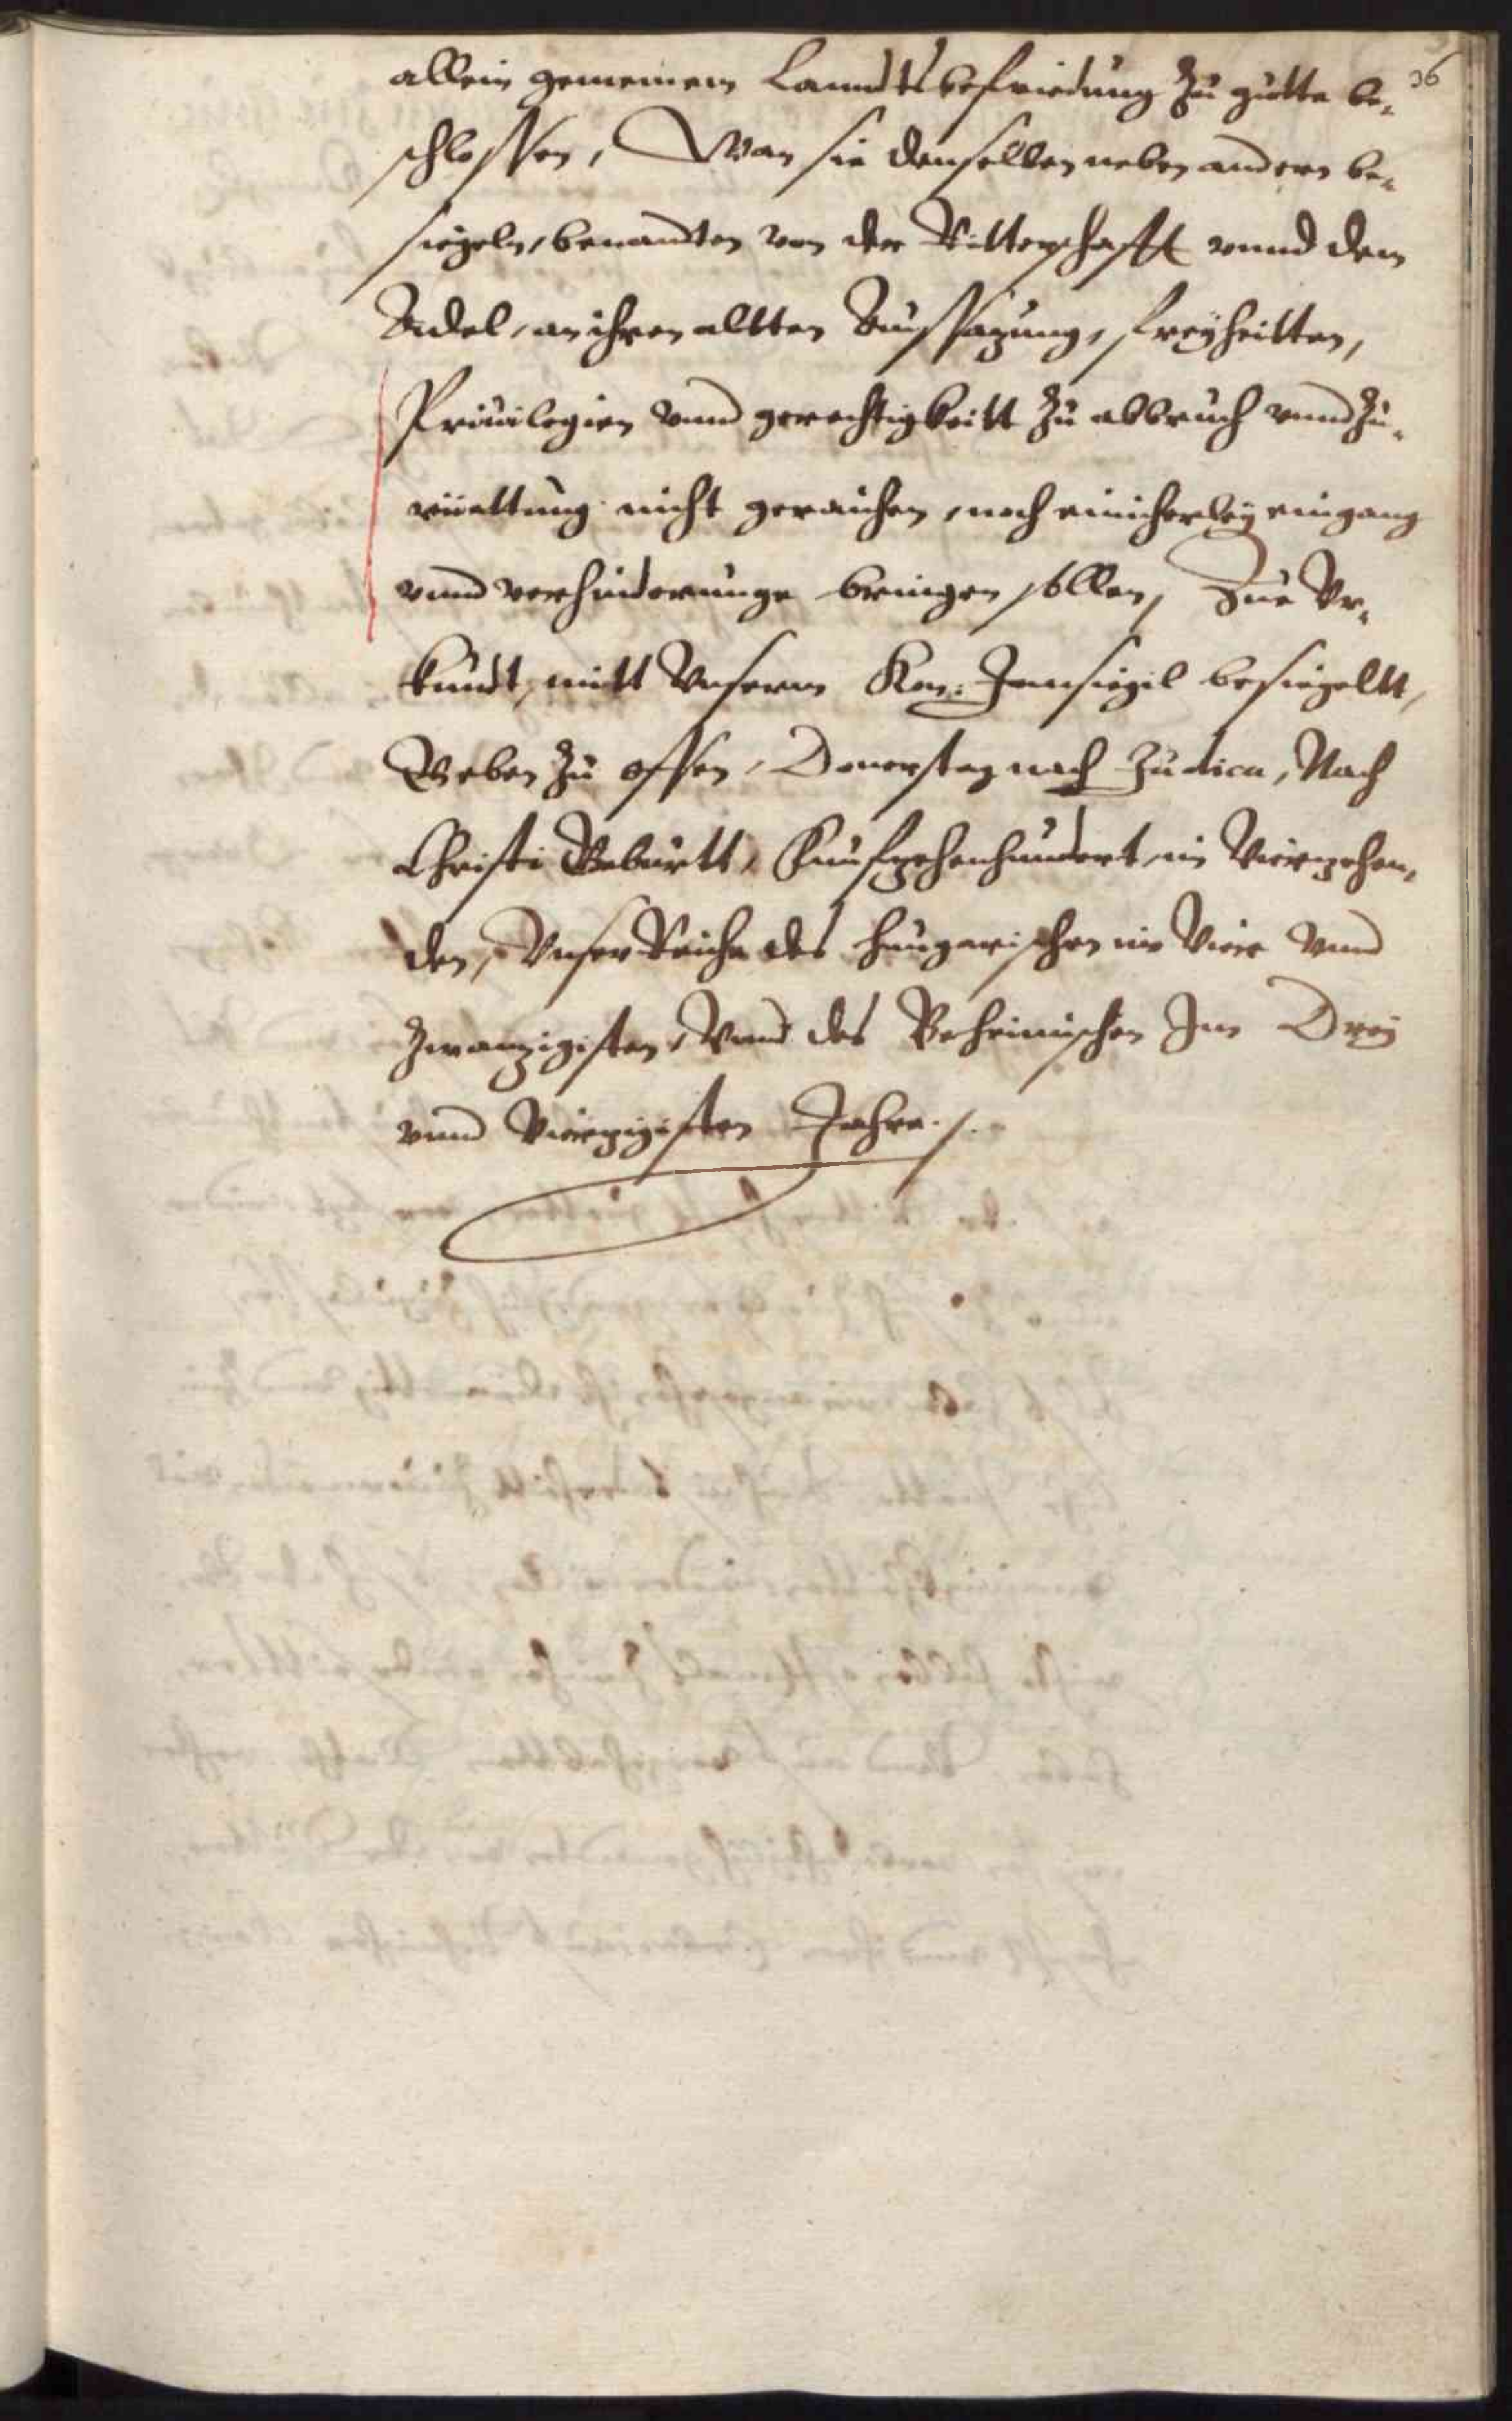 36
allein gemeinem Lanndts befriedung zu gutte be-
schlossen, Wan sie denselben neben andern be-
siegeln, benandten von der Ritterschafft vnnd dem
Adel, an ihren altten Aussazung, freyheitten,
Priuilegien vnnd gerechtigkeitt zu abbruch vnnd zu-
rüettung nicht geraichen, noch einicherley eingang
vnnd verhinderunge bringen sollen, Zue Vr-
kundt, mitt Vnserm Kön: Innsiegil besiegeltt,
Geben zu offen, Donerstag nach Judica, Nach
Christi Geburtt, Funfzehenhundert, im Vierzehen-
den, Vnser Reiche des Hungarischen im Vier Vnnd
zwanzigisten, Vnnd des Behemischen Im Drey
vnnd Vierzigisten Jahre ./.